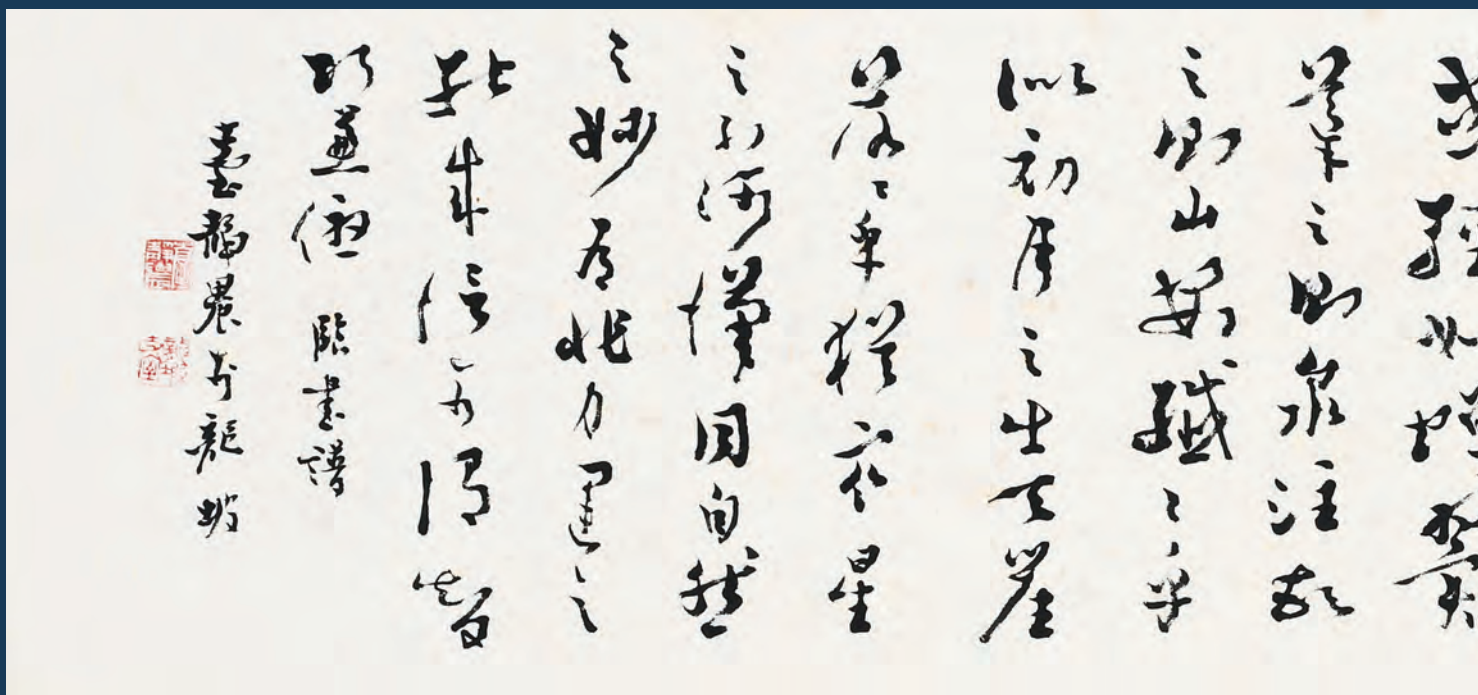 或輕如蟬翼
導之則泉注頓
之則山安纖〻乎
似初月之出天崖
落〻乎猶眾星
之列河漢同自然
之妙有非力運之
能成信可謂智
巧兼優 臨書譜
臺靜農於龍坡